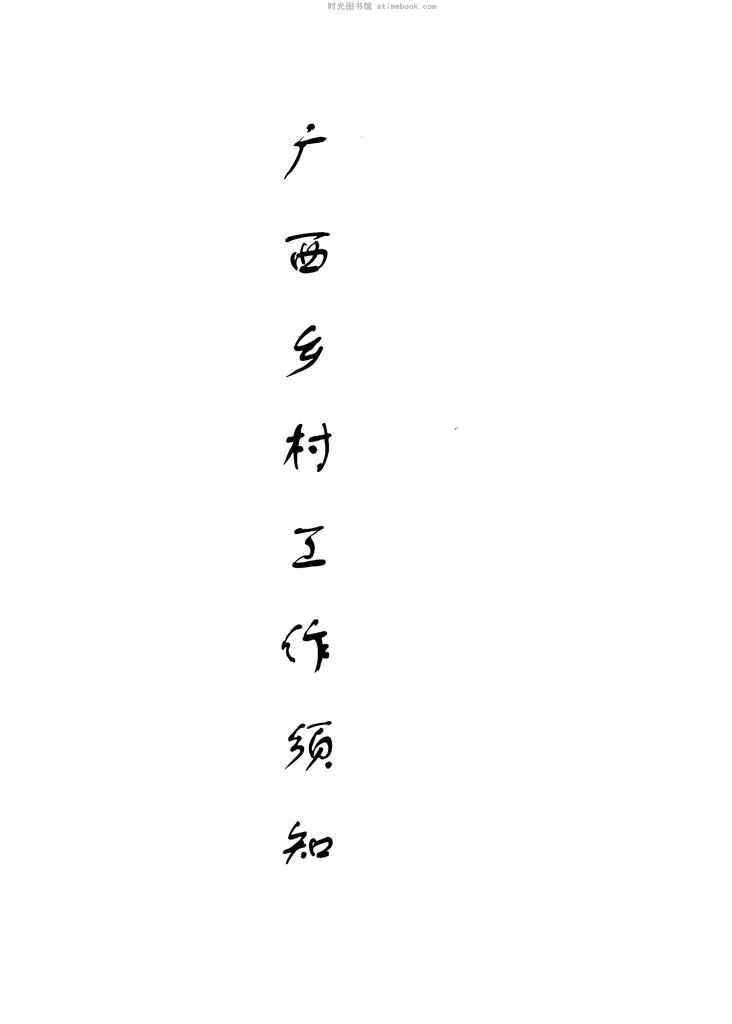 时光图书馆 stimebook.com
广西乡村工作须知